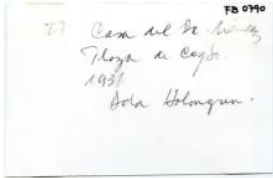 FB 0790
27 Casa del Dr.
Plaza de
1931
Lola Holmgren.